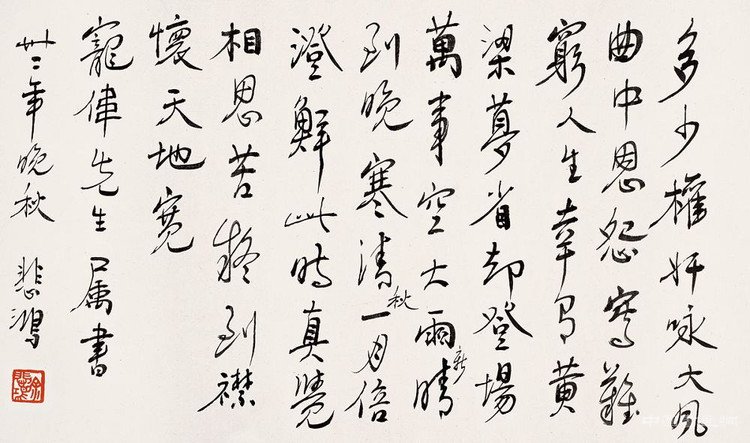 多少權奸咏大風
曲中恩怨寫難
窮人生幸有黃
梁夢省却登場
萬事空大雨新晴
到晚寒清秋一月倍
澄鮮此時真覺
相思苦移到襟
懷天地寬
寵偉先生属書
卅二年晚秋 悲鴻